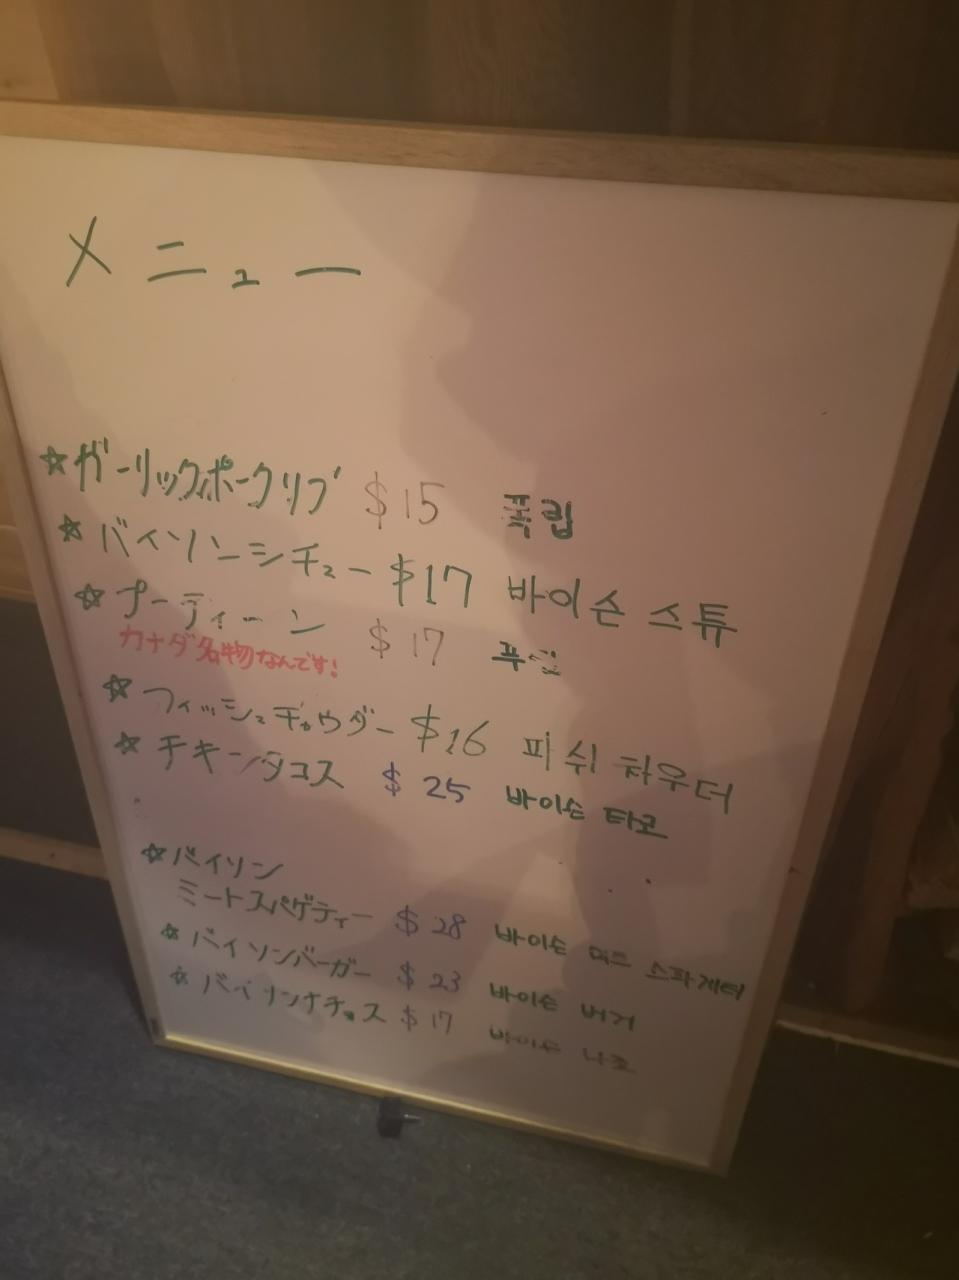 メニュー
☆ガーリックポークリブ $15 폭립
☆バイソンシチュー $17 바이슨 스튜
☆プーティーン $17 푸틴
カナダ名物なんです!
☆フィッシュチャウダー $16 피쉬 차우더
☆チキンタコス $25 바이슨 타코
☆バイソン
ミートスパゲティー $28 바이슨 미트 스파게티
☆バイソンバーガー $23 바이슨 버거
☆バイソンナチョス $17 바이슨 나쵸